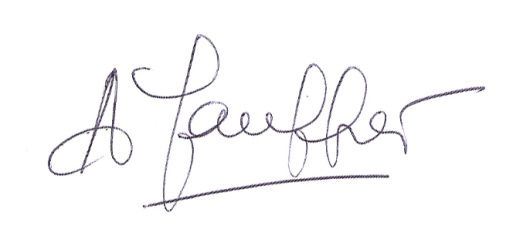 A Lauffer